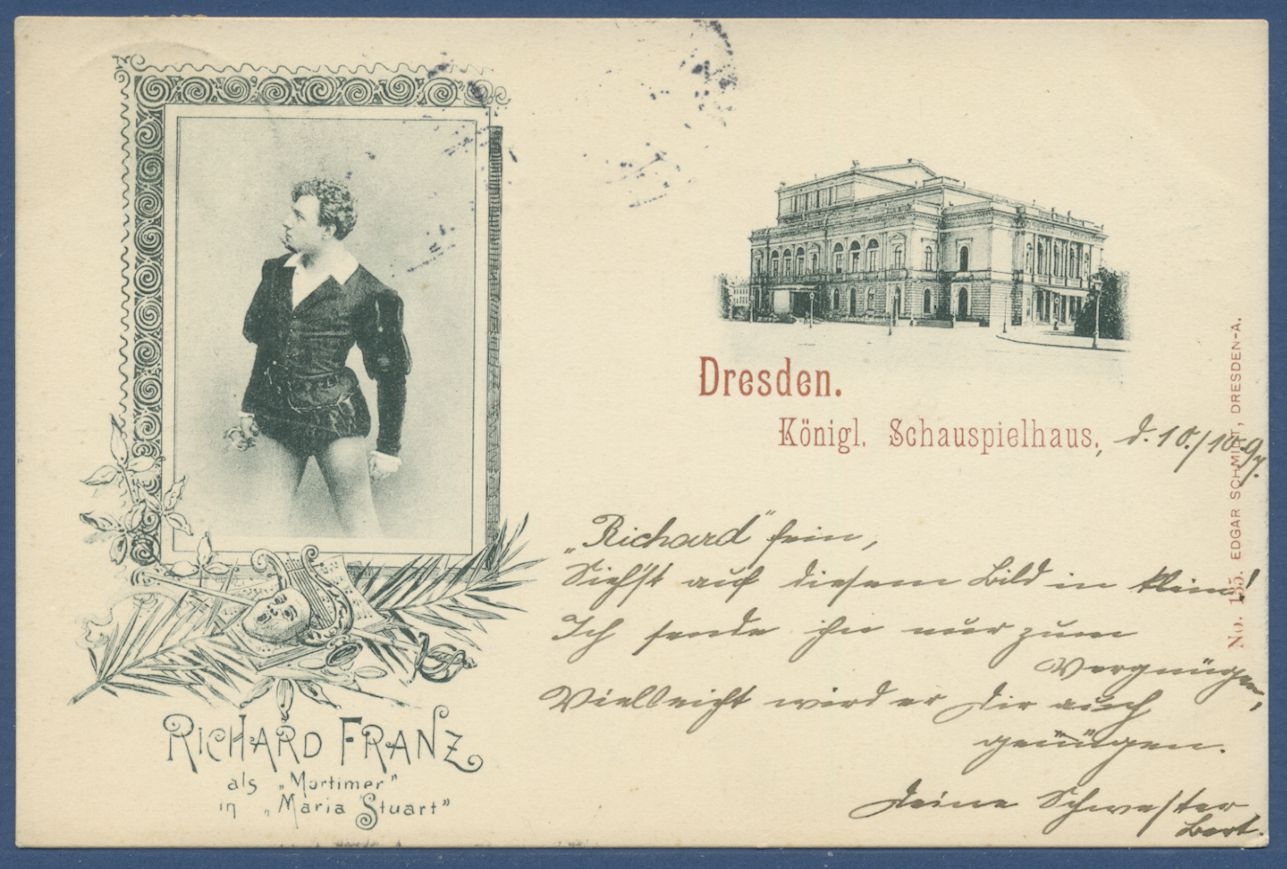 RICHARD FRANZ
als „Mortimer"
in „Maria Stuart"
Dresden.
Königl. Schauspielhaus, d. 10./10. 97.
„Richard" fein,
Siehst auf diesem Bild in klein!
Ich sende ihn nur zum
Vergnügen,
Vielleicht wird er Dir auch
genügen.
Deine Schwester
No. 135. EDGAR SCHMIDT, DRESDEN-A.